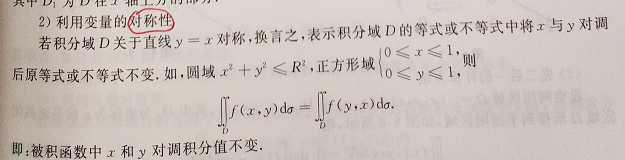 2) 利用变量的对称性
若积分域 D 关于直线 y = x 对称,换言之,表示积分域 D 的等式或不等式中将 x 与 y 对调
后原等式或不等式不变. 如,圆域 x² + y² ≤ R²,正方形域 { 0 ≤ x ≤ 1, 0 ≤ y ≤ 1, 则
∬_D f(x,y)dσ = ∬_D f(y,x)dσ.
即:被积函数中 x 和 y 对调积分值不变.